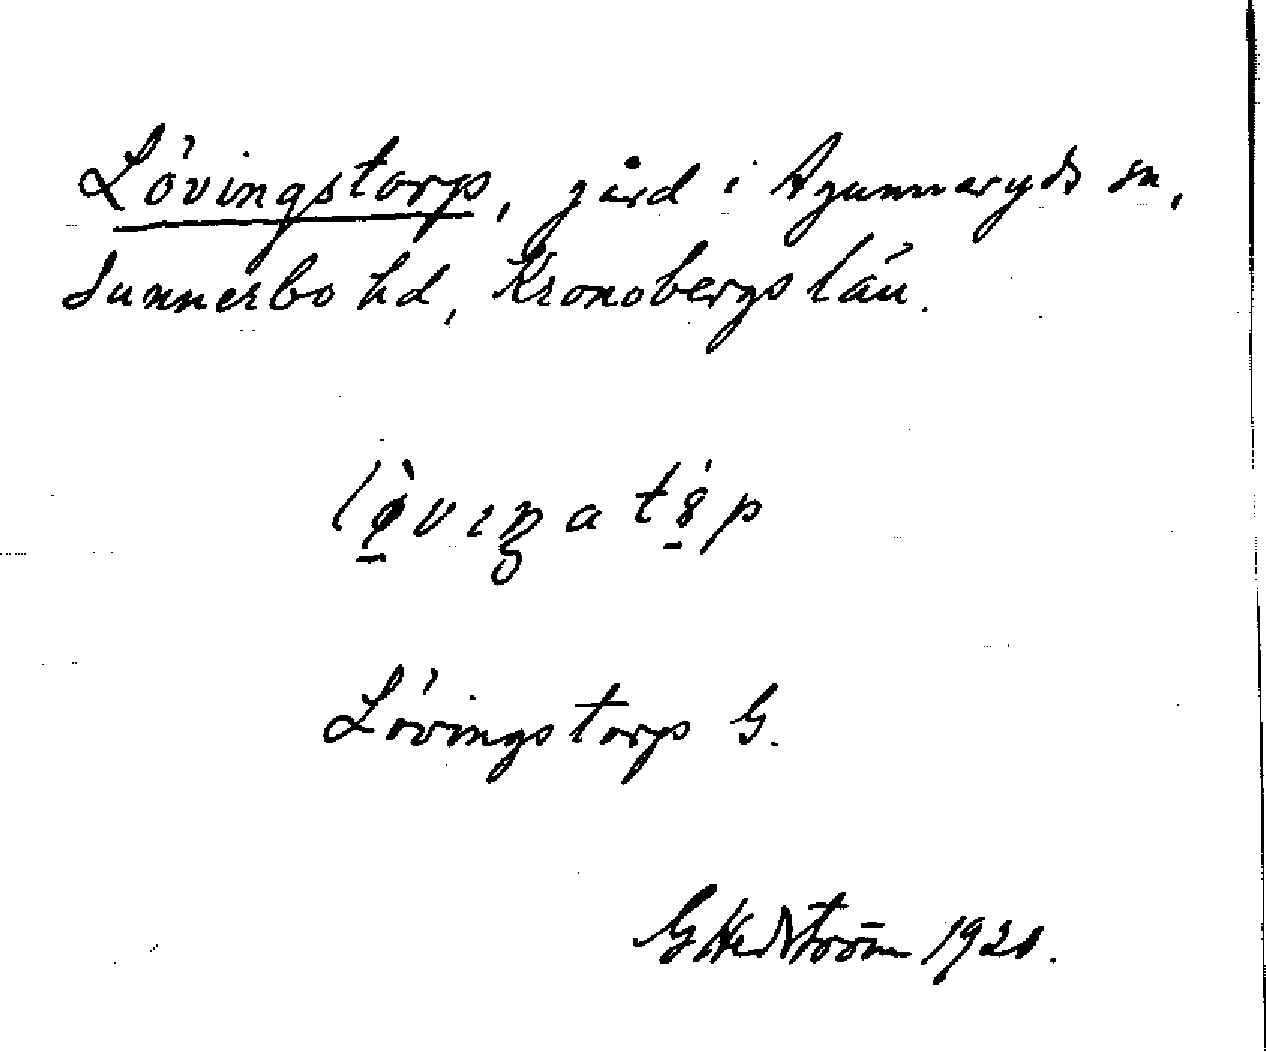 Lövingstorp, gård i Agunnaryds sn,
Sunnerbo hd, Kronobergs län.
Lövingstorp G.
G Hedström